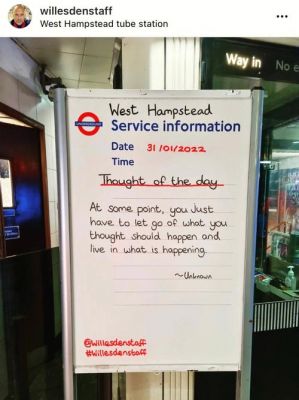 willesdenstaff
West Hampstead tube station
Way in
No e
West Hampstead
UNDERGROUND
Service information
Date 31/01/2022
Time
Thought of the day
At some point, you just
have to let go of what you
thought should happen and
live in what is happening.
~Unknown
@willesdenstaff
#willesdenstaff